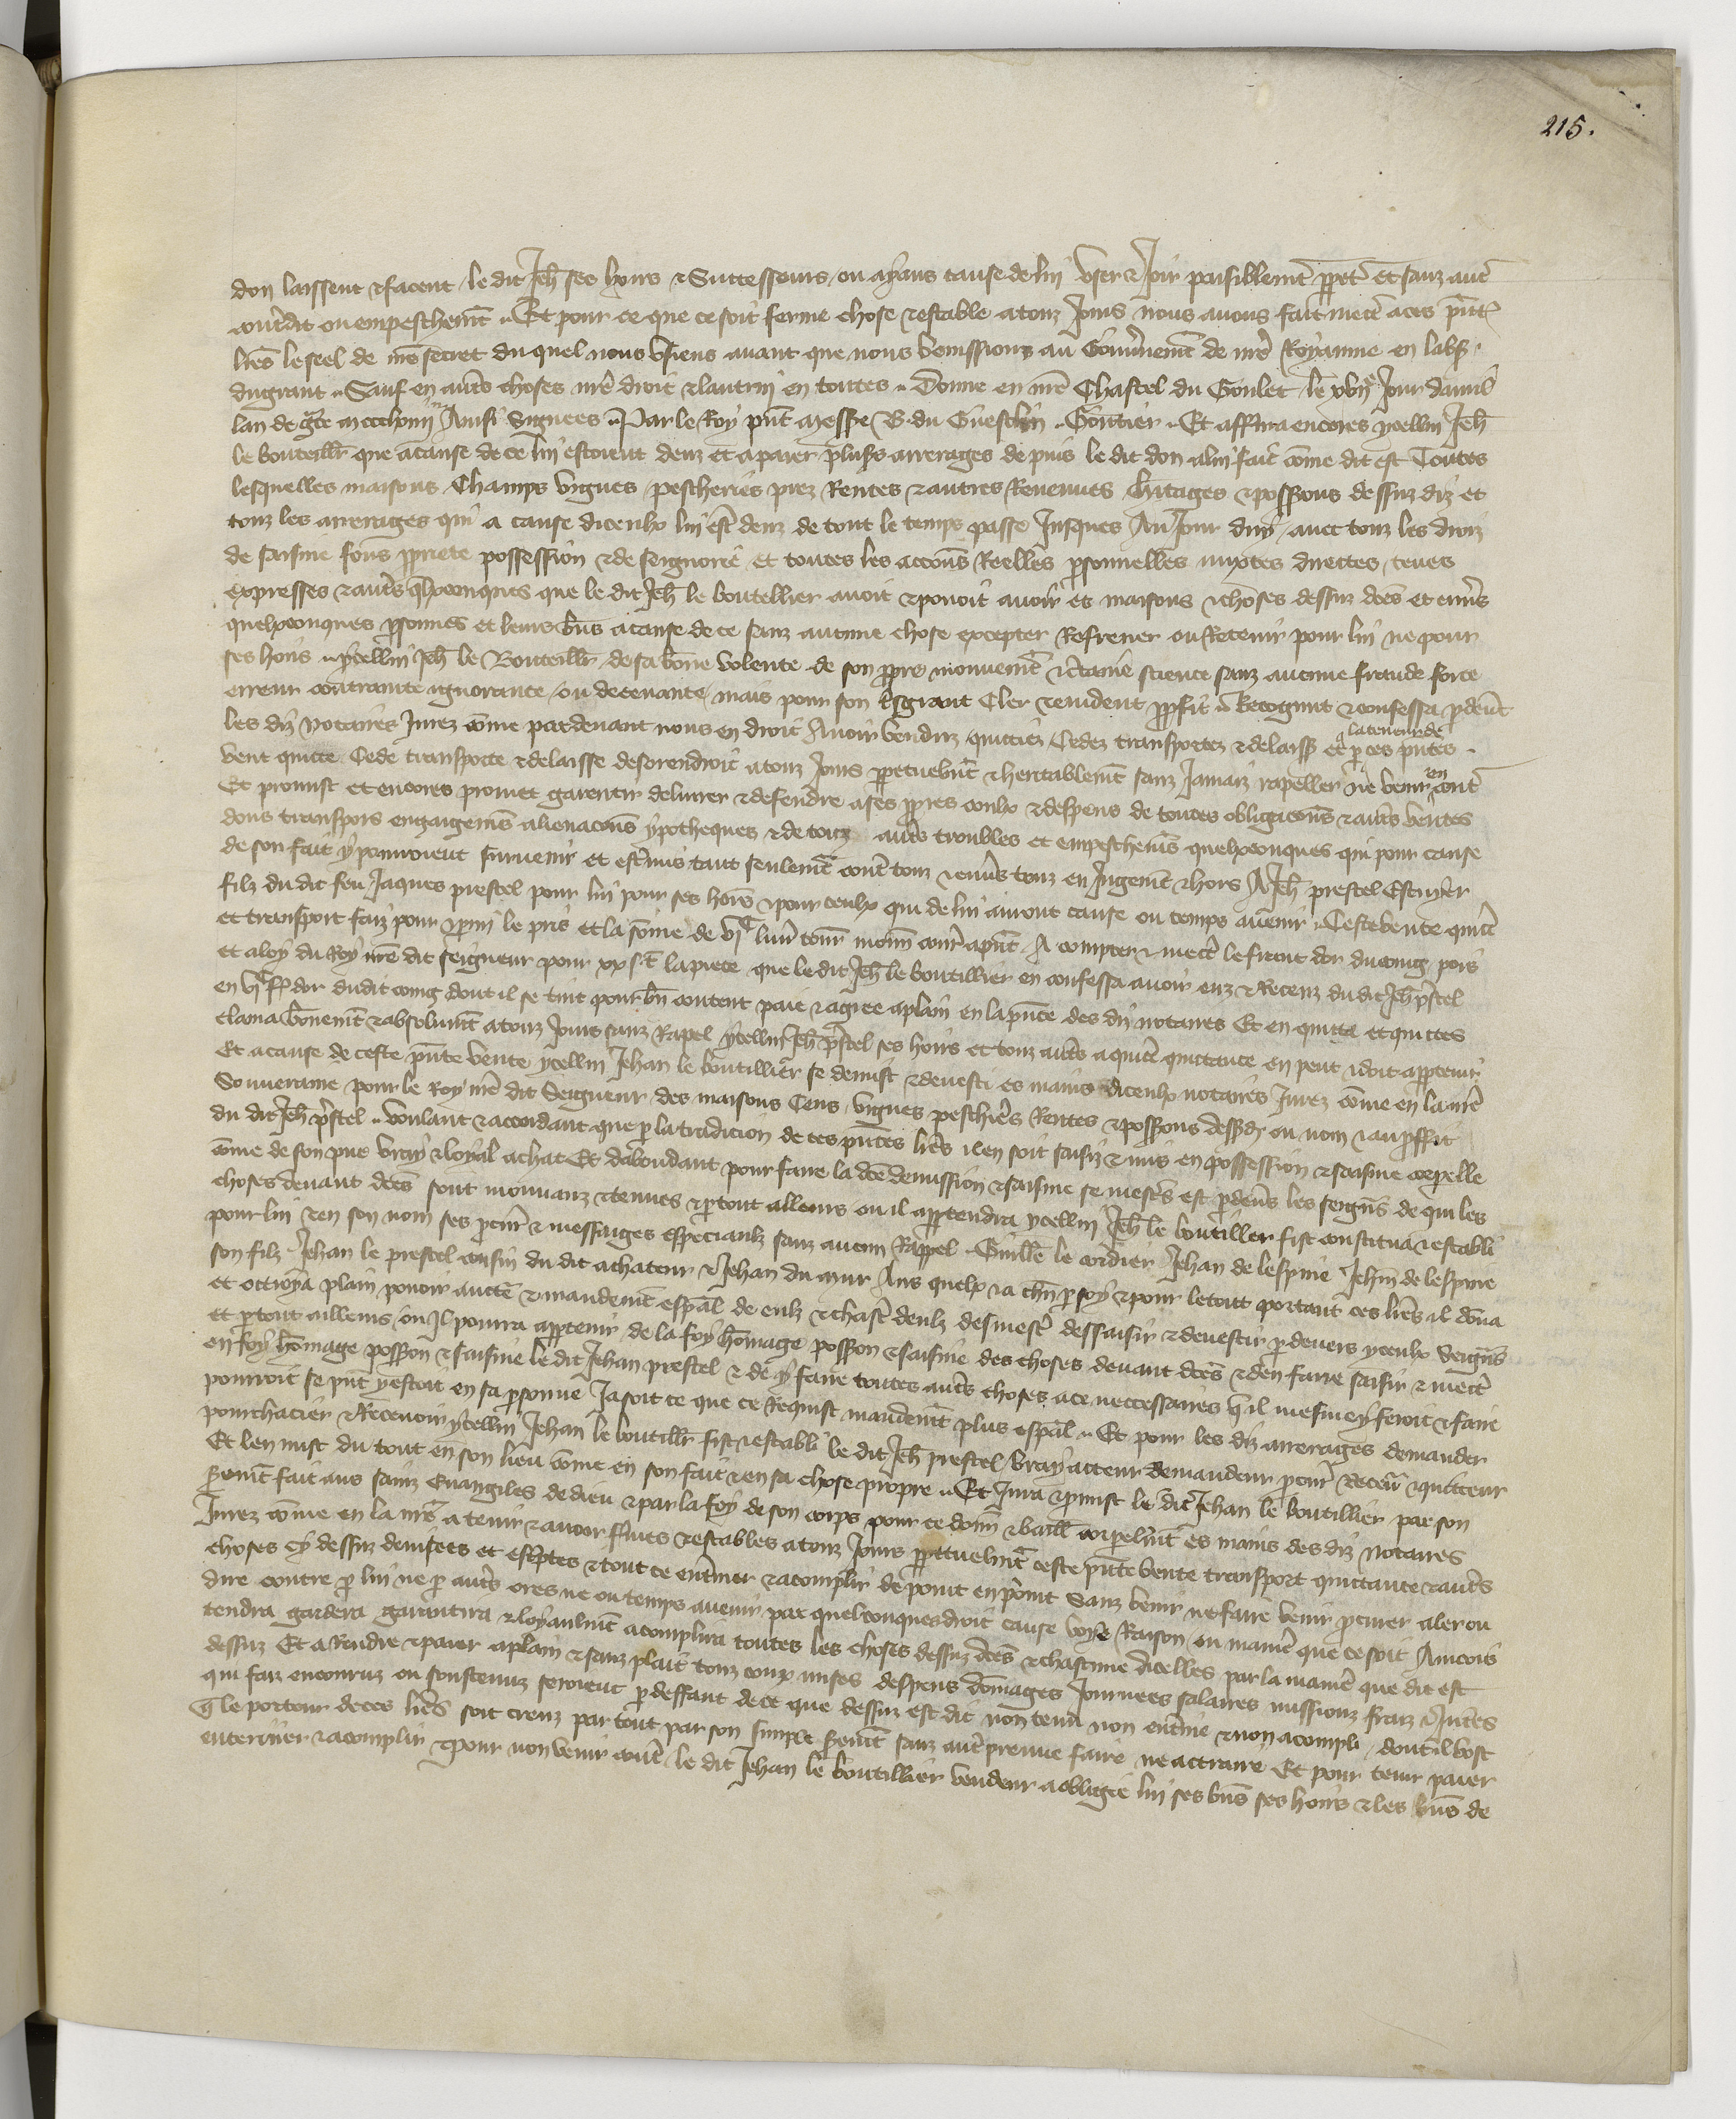 215.
don laissent & facent le dit Jeh̄ ses hoirs & Successeurs ou ayans cause de lui user & Joir paisiblemt̄ ppet̄ et sanz aut̄
cont̄dit ou empeschemt̄ .. Et pour ce que ce soit ferme chose & estable a touz Jours nous auons fait mect̄ a ces p̄nt̄
lr̄es le seel de nr̄e secret du quel nous usiens auant que nous venissions au Gouu̓nemt̄ de nr̄e Royaume en labs̄.
du grant .. Sauf en aut̄s choses nr̄e droit & lautrui en toutes .. Donne en nr̄e Chastel du Goulet le xvije Jour dauril
lan de gr̄ce m ccclxiiij Ainsi Signees .. Par le Roy p̄nt Messr̄e B. du Guesclin .. Gontier .. Et afferma encores ycellui Jeh̄
le bouteill̄r que a cause de ce lui estoient deuz et a paier plus̄s arrerages de puis le dit don a lui fait cōme dit est Toutes
lesquelles maisons Champs vignes pescheries prez Rentes & autres Reuenues h̄itages & poss̄ions dessuz diz et
touz les arrerages qui a cause diceulx lui est̄ deuz de tout le temps passe Jusques Au Jour duy auec touz les droiz
de saisine fons pp̄riete possession & de seignorie et toutes les acc̄ons Reelles p̄sonnelles mixtes directes teues
expresses & aut̄s qlxconques que le dit Jeh̄ le boutellier auoit & pouoit auoir es maisons & choses dessuz dc̄es et enu̓s
quelxconques p̄sonnes et leurs bn̄s a cause de ce sanz aucune chose excepter Refrener ou Retenir pour lui ne pour
ses hoirs .. ycellui Jeh̄ le Bouteill̄r de sa bōne volente de son pp̄re mouuemt̄ & c̄taine science sanz aucune fraude force
erreur contrainte ignorance ou deceuance mais pour son t̄sgrant Cler & euident pp̄fit .. Recognut & confessa p̄deu̓nt
les diz Notaires Jurez cōme par deuant nous en droit Auoir venduz quictiez Cedez transportez & delaiss̄ et p̄ la teneur de ces p̄ntes
vent quitte Cede transporte & delaisse desorendroit a touz Jours ppetuelmt̄ & heritablemt̄ sanz Jamaiz rapeller ne venir en cont̄
Et promist et encores promet garentir deliurer & defendre a ses pp̄res coulx & despens de toutes obligac̄ons & aut̄s ventes
dons transpors engaigemt̄s alienac̄ons ypotheques & de touz aut̄s troubles et empeschemt̄s quelxconques qui pour cause
de son fait y pourroient suruenir et est̄ mis tant seulemt̄ cont̄ touz & enu̓s touz en Jugemt̄ & hors A Jeh̄ prestel Escuyer
filz du dit feu Jaques prestel pour lui pour ses hoirs & pour ceulx qui de lui auront cause ou temps auenir .. Ceste vente quitt̄
et transport faiz pour & p̄mi le pris et la sōme de vjc liur̄ tourn̄ monn̄ cour̄ a p̄nt A compter & mect̄ le franc dor du coing pois
et aloy du Roy nr̄e dit seigneur pour xx s̄ t̄ la piece que le dit Jeh̄ le boutillier en confessa auoir euz & Receuz du dit Jeh̄ p̄stel
en vjc fr̄ dor du dit coing dont il se tint pour bn̄ content paie & agree a plain en la p̄nce des diz notaires Et en quitta et quictes
clama bōnemt̄ & absolumt̄ a touz Jours sanz Rapel ycellui Jeh̄ p̄stel ses hoirs et touz aut̄s a qui t̄ quittance en peut & doit app̄tenir
Et a cause de ceste p̄nte vente ycellui Jehan le boutillier se demist & deuesti es mains diceulx notaires Jurez cōme en la nr̄e
Souueraine pour le Roy nr̄e dit Seigneur des maisons Cens vignes peschieres Rentes & poss̄ions dess̄d ou nom & au p̄ffit
du dit Jeh̄ p̄stel .. voulant & accordant que p̄ la tradicion de ces p̄ntes lr̄es il en soit saisiz & mis en possession & saisine corpelle
cōme de son pur vray & loyal achat Et dabondant pour faire la dc̄e demission & saisine se mest̄s est p̄deu̓s les seign̄s de qui les
choses deuant dc̄es sont mouuanz & tenues & p̄tout alleurs ou il app̄tendra ycellui Jeh̄ le boutiller fist constitua & establi
pour lui & en son nom ses p̄cur̄ & messaiges especiaulx sanz aucun Rappel .. Guill̄e le cordier Jehan de lespine Jehn̄ de lespine
son filz Jehan le prestel cousin du dit achateur & Jehan du mur Aus quelx & a ch̄n p̄ soy & pour le tout portant ces lr̄es il dōna
et ottroya plain pouoir auct̄e & mandemt̄ esp̄al de eulx & chasc̄ deulx desmest̄ dessaisir & deuestir p̄ deuers yceulx Seign̄s
et p̄tout ailleurs ou Jl pourra app̄tenir de la foy hōmage poss̄ion & saisine des choses deuant dc̄es & den faire saisir & mect̄
en foy hōmage poss̄ion & saisine le dit Jehan prestel & de y faire toutes aut̄s choses a ce neccessaires q̄ il mesme y feroit & faire
pourroit se p̄nt y estoit en sa p̄sonne Jasoit ce que ce Requist mandemt̄ plus esp̄al .. Et pour les diz arrerages demander
pourchacier & Receuoir ycellui Jehan le boutill̄r fist & establi le dit Jeh̄ prestel vray acteur demandeur p̄cur̄ Receu̓r & quitteur
Et len mist du tout en son lieu cōme en son fait & en sa chose propre .. Et Jura & p̄mist le dit Jehan le boutillier par son
s̄remt̄ fait aus sainz Euangiles de dieu & par la foy de son corps pour ce donn̄ & baill̄ corpelmt̄ es mains des diz Notaires
Jurez cōme en la nr̄e a tenir & auoir fermes & estables a touz Jours ppetuelmt̄ ceste p̄nte vente transport quittance & aut̄s
choses cy dessuz deuisees et esc̄ptes & tout ce ent̄iner & acomplir de point en point Sanz venir ne faire venir p̄curer aler ou
dire contre p̄ lui ne p̄ aut̄s ores ne ou temps auenir par quelconques droit cause voye Raison ou manie̓ que ce soit Ancois
tendra gardera garentira & loyaulmt̄ acomplira toutes les choses dessuz dc̄es & chascune dicelles par la manie̓ que dit est
dessuz Et a Rendre & paier a plain & sanz plait touz coux mises despens dōmages Journees salaires missions fraiz & Jnt̄es
qui faiz encouruz ou soustenuz seroient p̄ deffaut de ce que dessuz est dit non tenu non ent̄ine & non acompli dont il voot
q̄ le porteur de ces lr̄es soit creuz par tout par son simple s̄remt̄ sanz aut̄ preuue faire ne actraire Et pour tenir paier
enteriner & acomplir & pour non venir cont̄ le dit Jehan le boutillier vendeur a obligie lui ses bn̄s ses hoirs & les bn̄s de